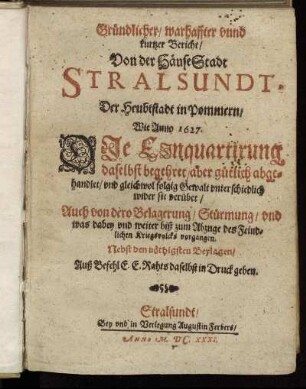 Gründlicher/ warhaffter vnnd
kurtzer Bericht/
Von der HänseStadt
STRALSUNDT.
Der Heubtstadt in Pommern/
Wie Anno 1627.
DIe Eynquartirung
daselbst begehret/ aber gütlich abge-
handlet/ vnd gleichwol folgig Gewalt vnterschiedlich
wider sie verübet/
Auch von dero Belagerung/ Stürmung/ vnd
was dabey vnd weiter biß zum Abzuge des Feind-
lichen Kriegsvolcks vorgangen.
Nebst den nöthigsten Beylagen/
Auß Befehl E. E. Rahts daselbst in Druck geben.
Stralsundt/
Bey vnd in Verlegung Augustin Ferbers/
ANNO M. DC. XXXI.